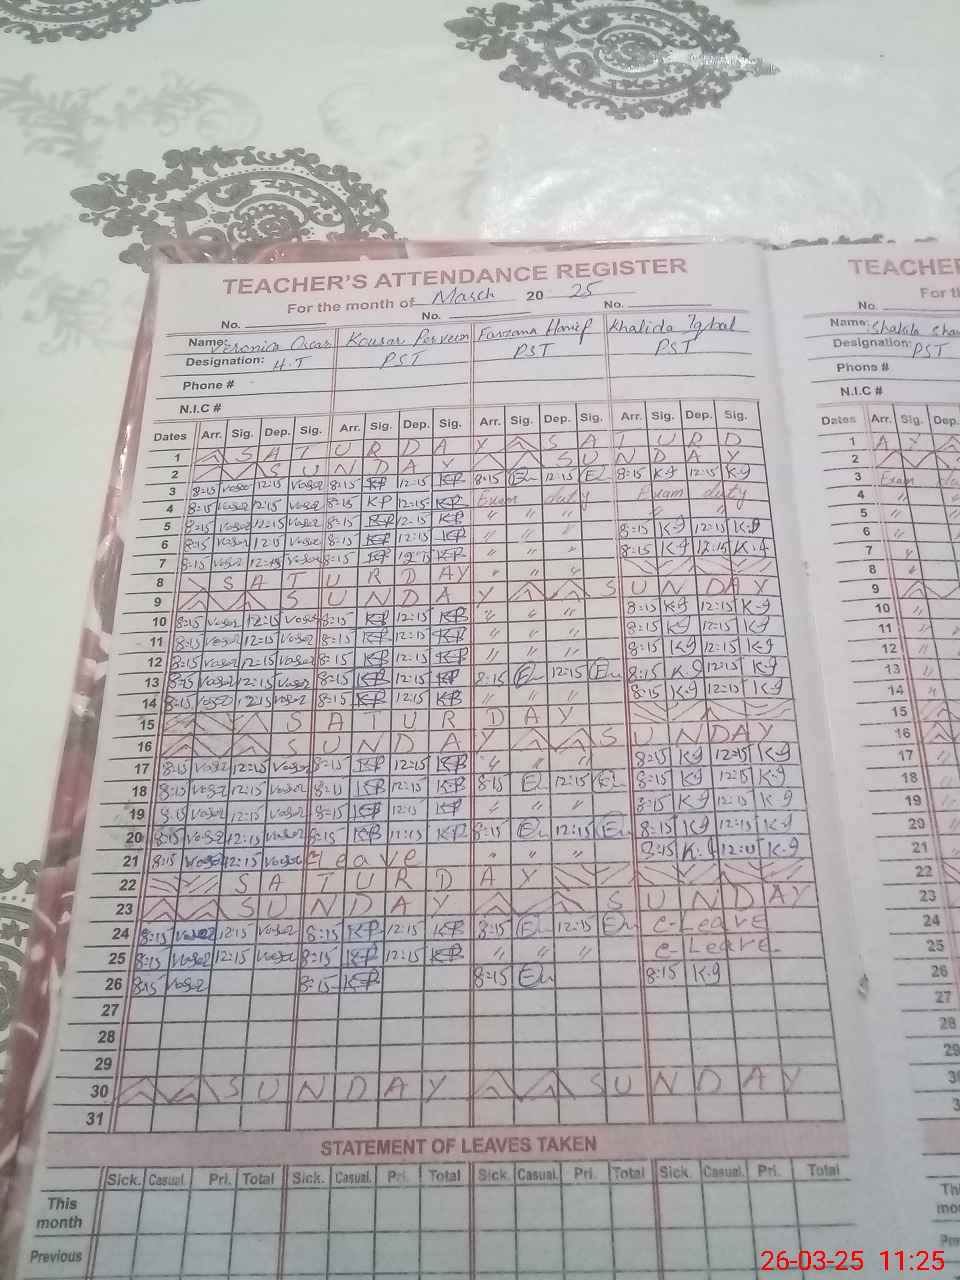 TEACHER'S ATTENDANCE REGISTER
For the month of March 20 25
No. No. No. No.
Name: Veronica Oscar Kousar Perveen Farzana Hanif Khalida Iqbal
Designation: H.T PST PST PST
Phone #
N.I.C #
Dates Arr. Sig. Dep. Sig. Arr. Sig. Dep. Sig. Arr. Sig. Dep. Sig. Arr. Sig. Dep. Sig.
1 S A T U R D A Y S A T U R D
2 S U N D A Y S U N D A Y
3 8:15 12:15 8:15 KP 12:15 KP 8:15 12:15 8:15 K-9 12:15 K-9
4 8:15 12:15 8:15 KP 12:15 KP Exam duty Exam duty
5 8:15 12:15 8:15 KP 12:15 KP " " " " " "
6 8:15 12:15 8:15 KP 12:15 KP " " " 8:15 K-9 12:15 K-9
7 8:15 12:15 8:15 KP 12:15 KP " " " 8:15 K-9 12:15 K-9
8 S A T U R D A Y " " "
9 S U N D A Y S U N D A Y
10 8:15 12:15 8:15 KP 12:15 KP " " " 8:15 K-9 12:15 K-9
11 8:15 12:15 8:15 KP 12:15 KP " " " 8:15 K-9 12:15 K-9
12 8:15 12:15 8:15 KP 12:15 KP " " " 8:15 K-9 12:15 K-9
13 8:15 12:15 8:15 KP 12:15 KP 8:15 12:15 8:15 K-9 12:15 K-9
14 8:15 12:15 8:15 KP 12:15 KP " " " 8:15 K-9 12:15 K-9
15 S A T U R D A Y
16 S U N D A Y S U N D A Y
17 8:15 12:15 8:15 KP 12:15 KP " " " 8:15 K-9 12:15 K-9
18 8:15 12:15 8:15 KP 12:15 KP 8:15 12:15 8:15 K-9 12:15 K-9
19 8:15 12:15 8:15 KP 12:15 KP " " " 8:15 K-9 12:15 K-9
20 8:15 12:15 8:15 KP 12:15 KP 8:15 12:15 8:15 K-9 12:15 K-9
21 8:15 12:15 leave " " " 8:15 K-9 12:15 K-9
22 S A T U R D A Y
23 S U N D A Y S U N D A Y
24 8:15 12:15 8:15 KP 12:15 KP 8:15 12:15 c-Leave
25 8:15 12:15 8:15 KP 12:15 KP " " " c-Leave
26 8:15 8:15 KP 8:15 8:15 K-9
27
28
29
30 S U N D A Y S U N D A Y
31
STATEMENT OF LEAVES TAKEN
Sick. Casual. Pri. Total Sick. Casual. Pri. Total Sick. Casual. Pri. Total Sick. Casual. Pri. Total
This month
Previous
TEACHE
For th
No.
Name: Shakila
Designation: PST
Phone #
N.I.C #
Dates Arr. Sig. Dep.
1 A Y
2
3 Exam
4 "
5 "
6 "
7 "
8 "
9
10 "
11 "
12 "
13 "
14 "
15
16
17 "
18 "
19 "
20 "
21 "
22
23
24
25
26
27
28
29
26-03-25 11:25